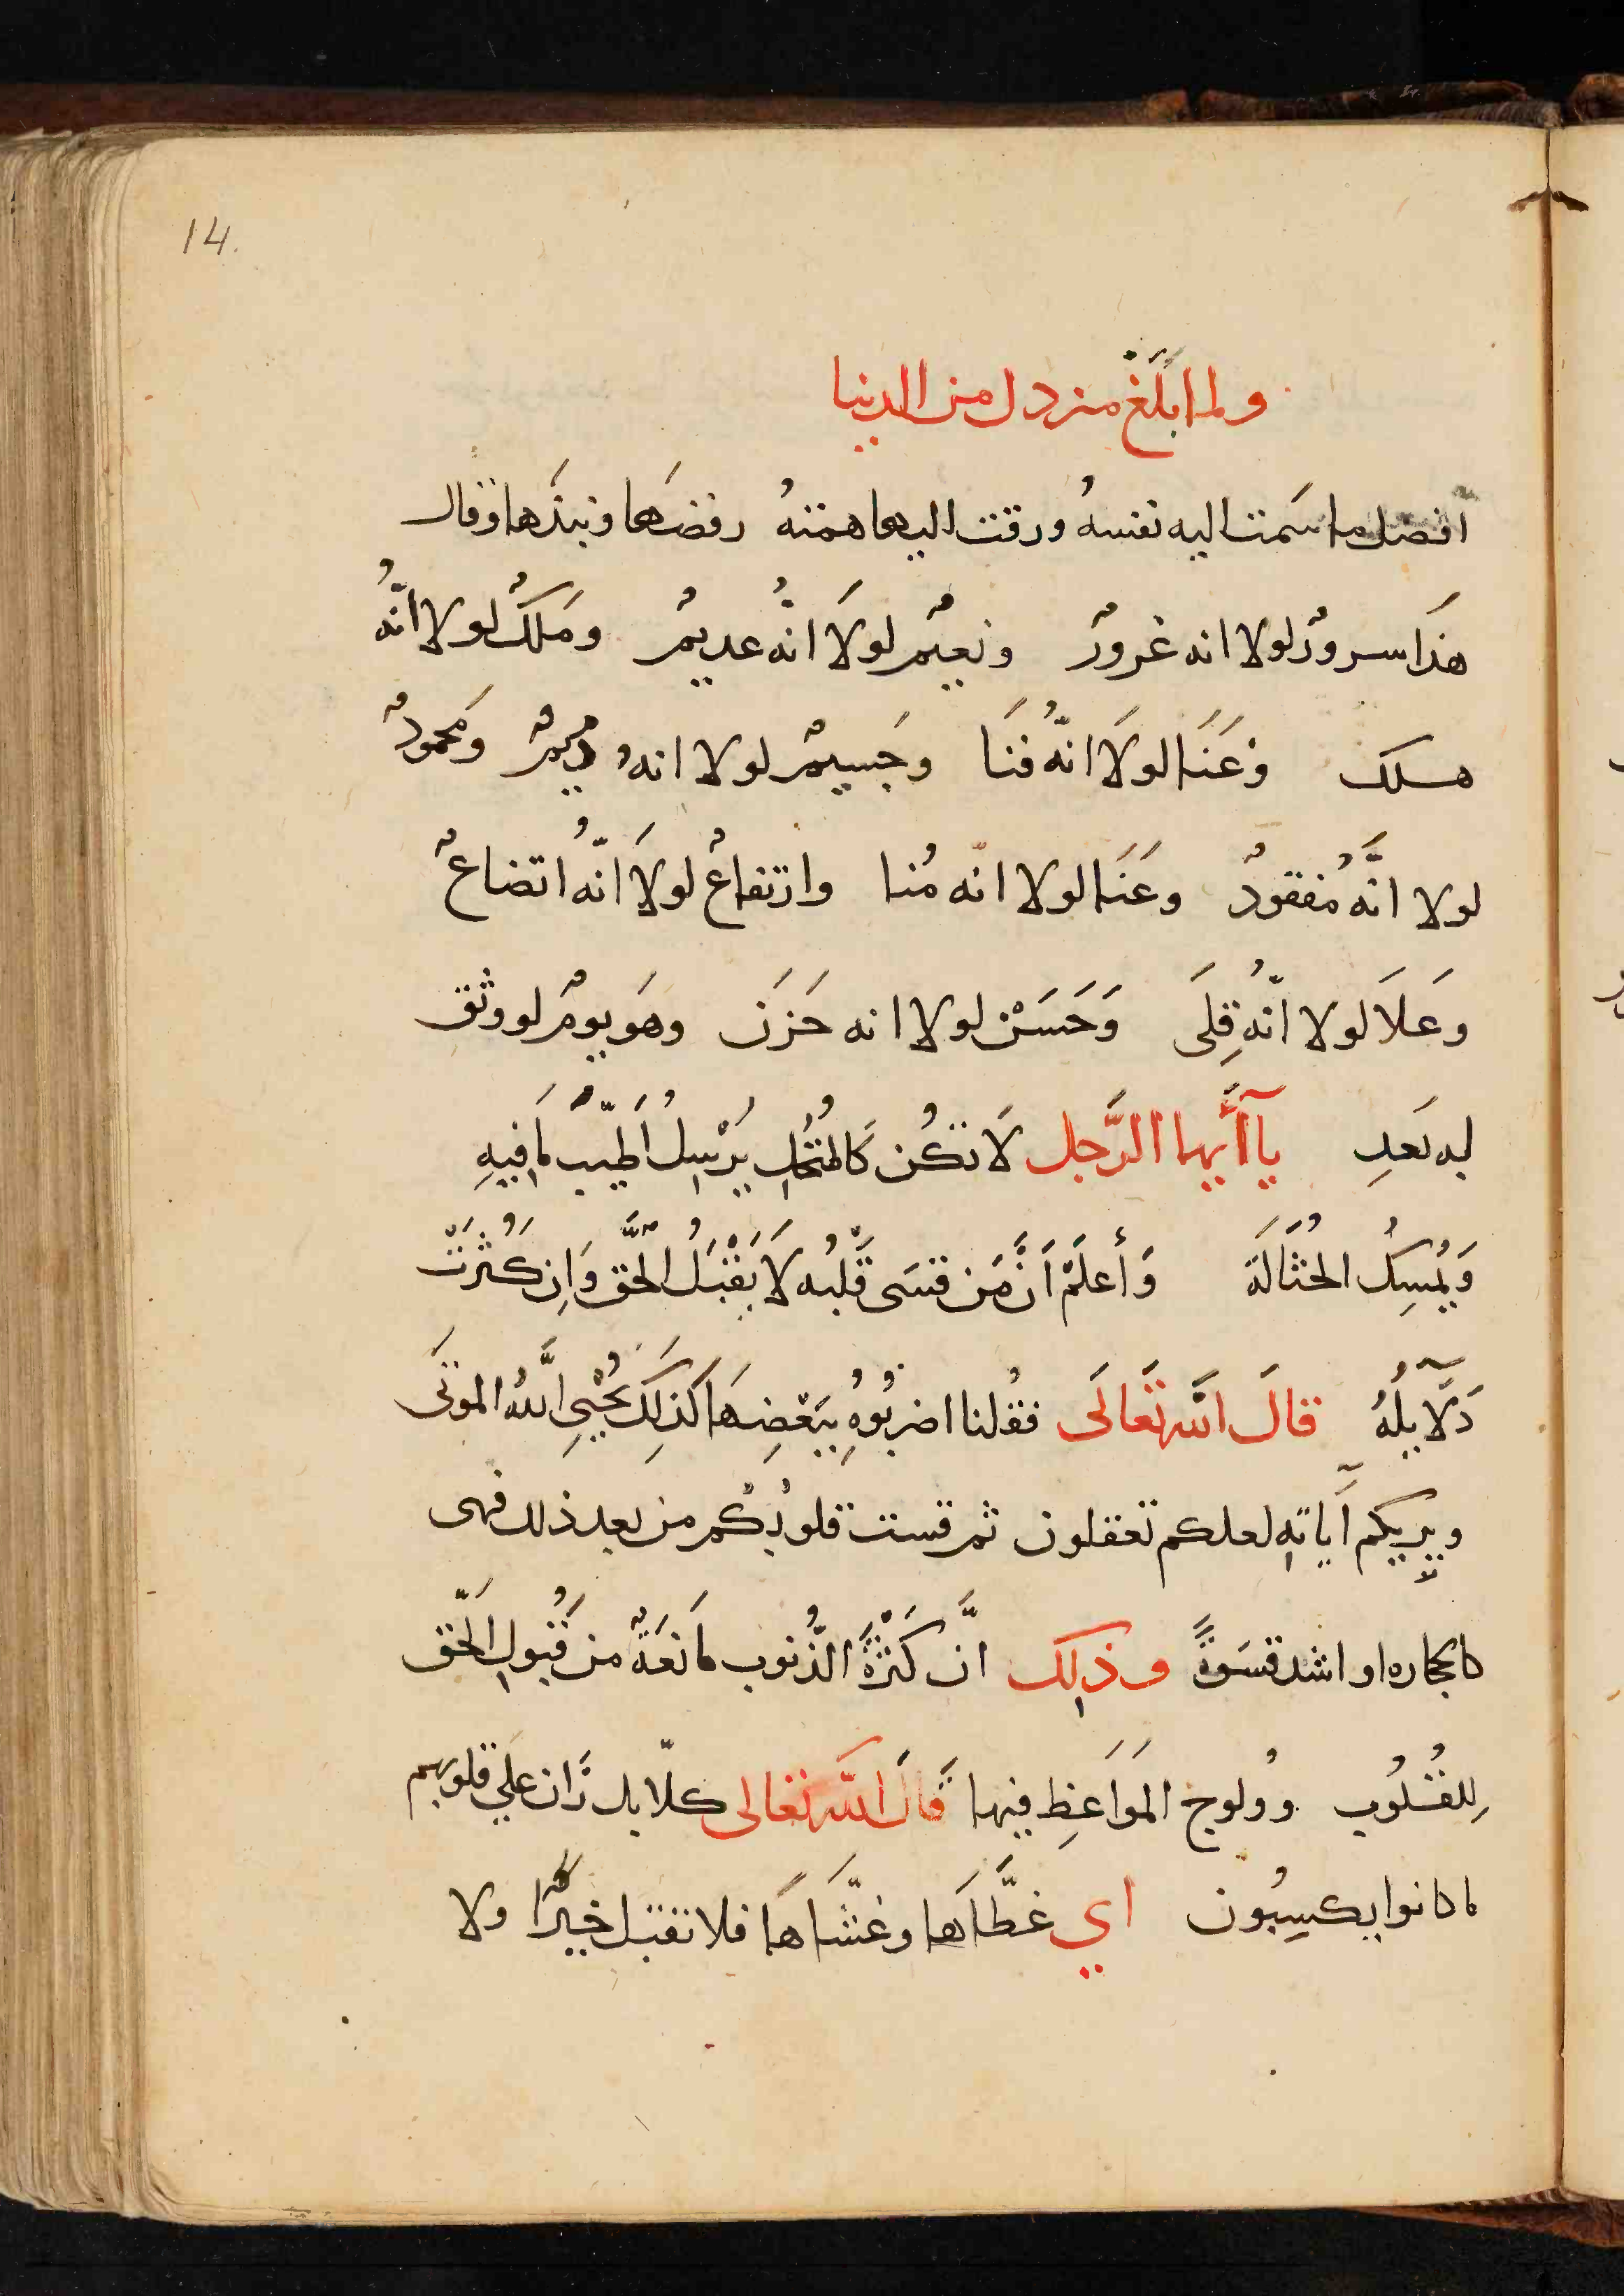 14.
ولما ابلغ منردل من الدنيا
افضل ما سَمت اليه نفسهُ ورقت اليها همتهُ رفضَها ونبذَها وقال
هذَا سرورٌ لولا انه غرورٌ ونعيمٌ لولَا انهُ عديمٌ ومَلكٌ لولا انّهُ
هلك وغَنَا لولَا انّهُ فنَا وجَسيمٌ لولا انهُ ذميمٌ ومَحمودٌ
لولا انَّهُ مُفقودٌ وعَنَا لولا انّه مُنا وارتفاعٌ لولَا انّهُ اتضاعٌ
وعَلَا لولا انّهُ قِلَى وَحَسَنْ لولا انه حَزَن وهَو يومٌ لو وثق
له بَعدِ يآ أَيها الرَّجل لَا تكُن كَالمُنُخلِ يُرْسِلُ اَطيّبَ مَا فيهِ
وَيُمْسِكُ الحُثَالَة وَأعلَمْ اَنَّ مَن قسَى قَلبُه لَا يَقْبَلُ الحَقَّ وَاِن كَثُرَتْ
دَلَآيلُهُ قالَ اللَّه تَعَالَى فقُلنا اضرِبُوُهِ بِبَعْضِهَا كذلِكَ يُحْيِى اللَّهُ الموتَى
ويريكم آيَاتهِ لعلكم تعقلون ثم قست قلوبُكم من بعد ذلك فهى
كالحجاره او اشد قسَوةً وذلِك انَّ كَثْرَةَ الذُّنوب مَانعَةٌ من قُبَولِ الحَّق
لِلقُلُوبِ وولُوج المَوَاعَظِ فيها قَالَ اللَّه تعَالى كلّا بل رَان علَي قلوبهم
ما كانوا يكسِبُون اي غطَّاهَا وغشَّاهَا فلا تقبل خيرًا ولا